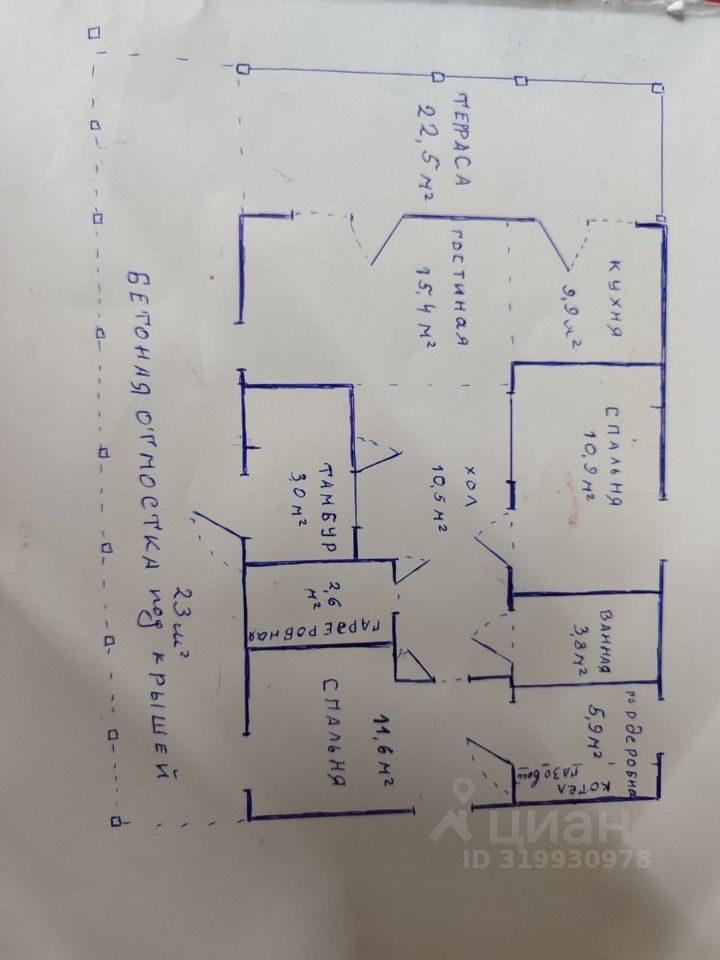 ТЕРРАСА
22,5 м²
ГОСТИНАЯ
15,4 м²
КУХНЯ
9,9 м²
СПАЛЬНЯ
10,9 м²
ХОЛ
10,5 м²
ТАМБУР
3,0 м²
2,6
м²
ГАРДЕРОБНАЯ
ВАННАЯ
3,8 м²
ГОРДЕРОБНА
5,9 м²
КОТЕЛ
ГАЗОВЫЙ
СПАЛЬНЯ
11,6 м²
БЕТОНАЯ ОТМОСТКА ПОД КРЫШЕЙ
23 м²
циан
ID 319930978